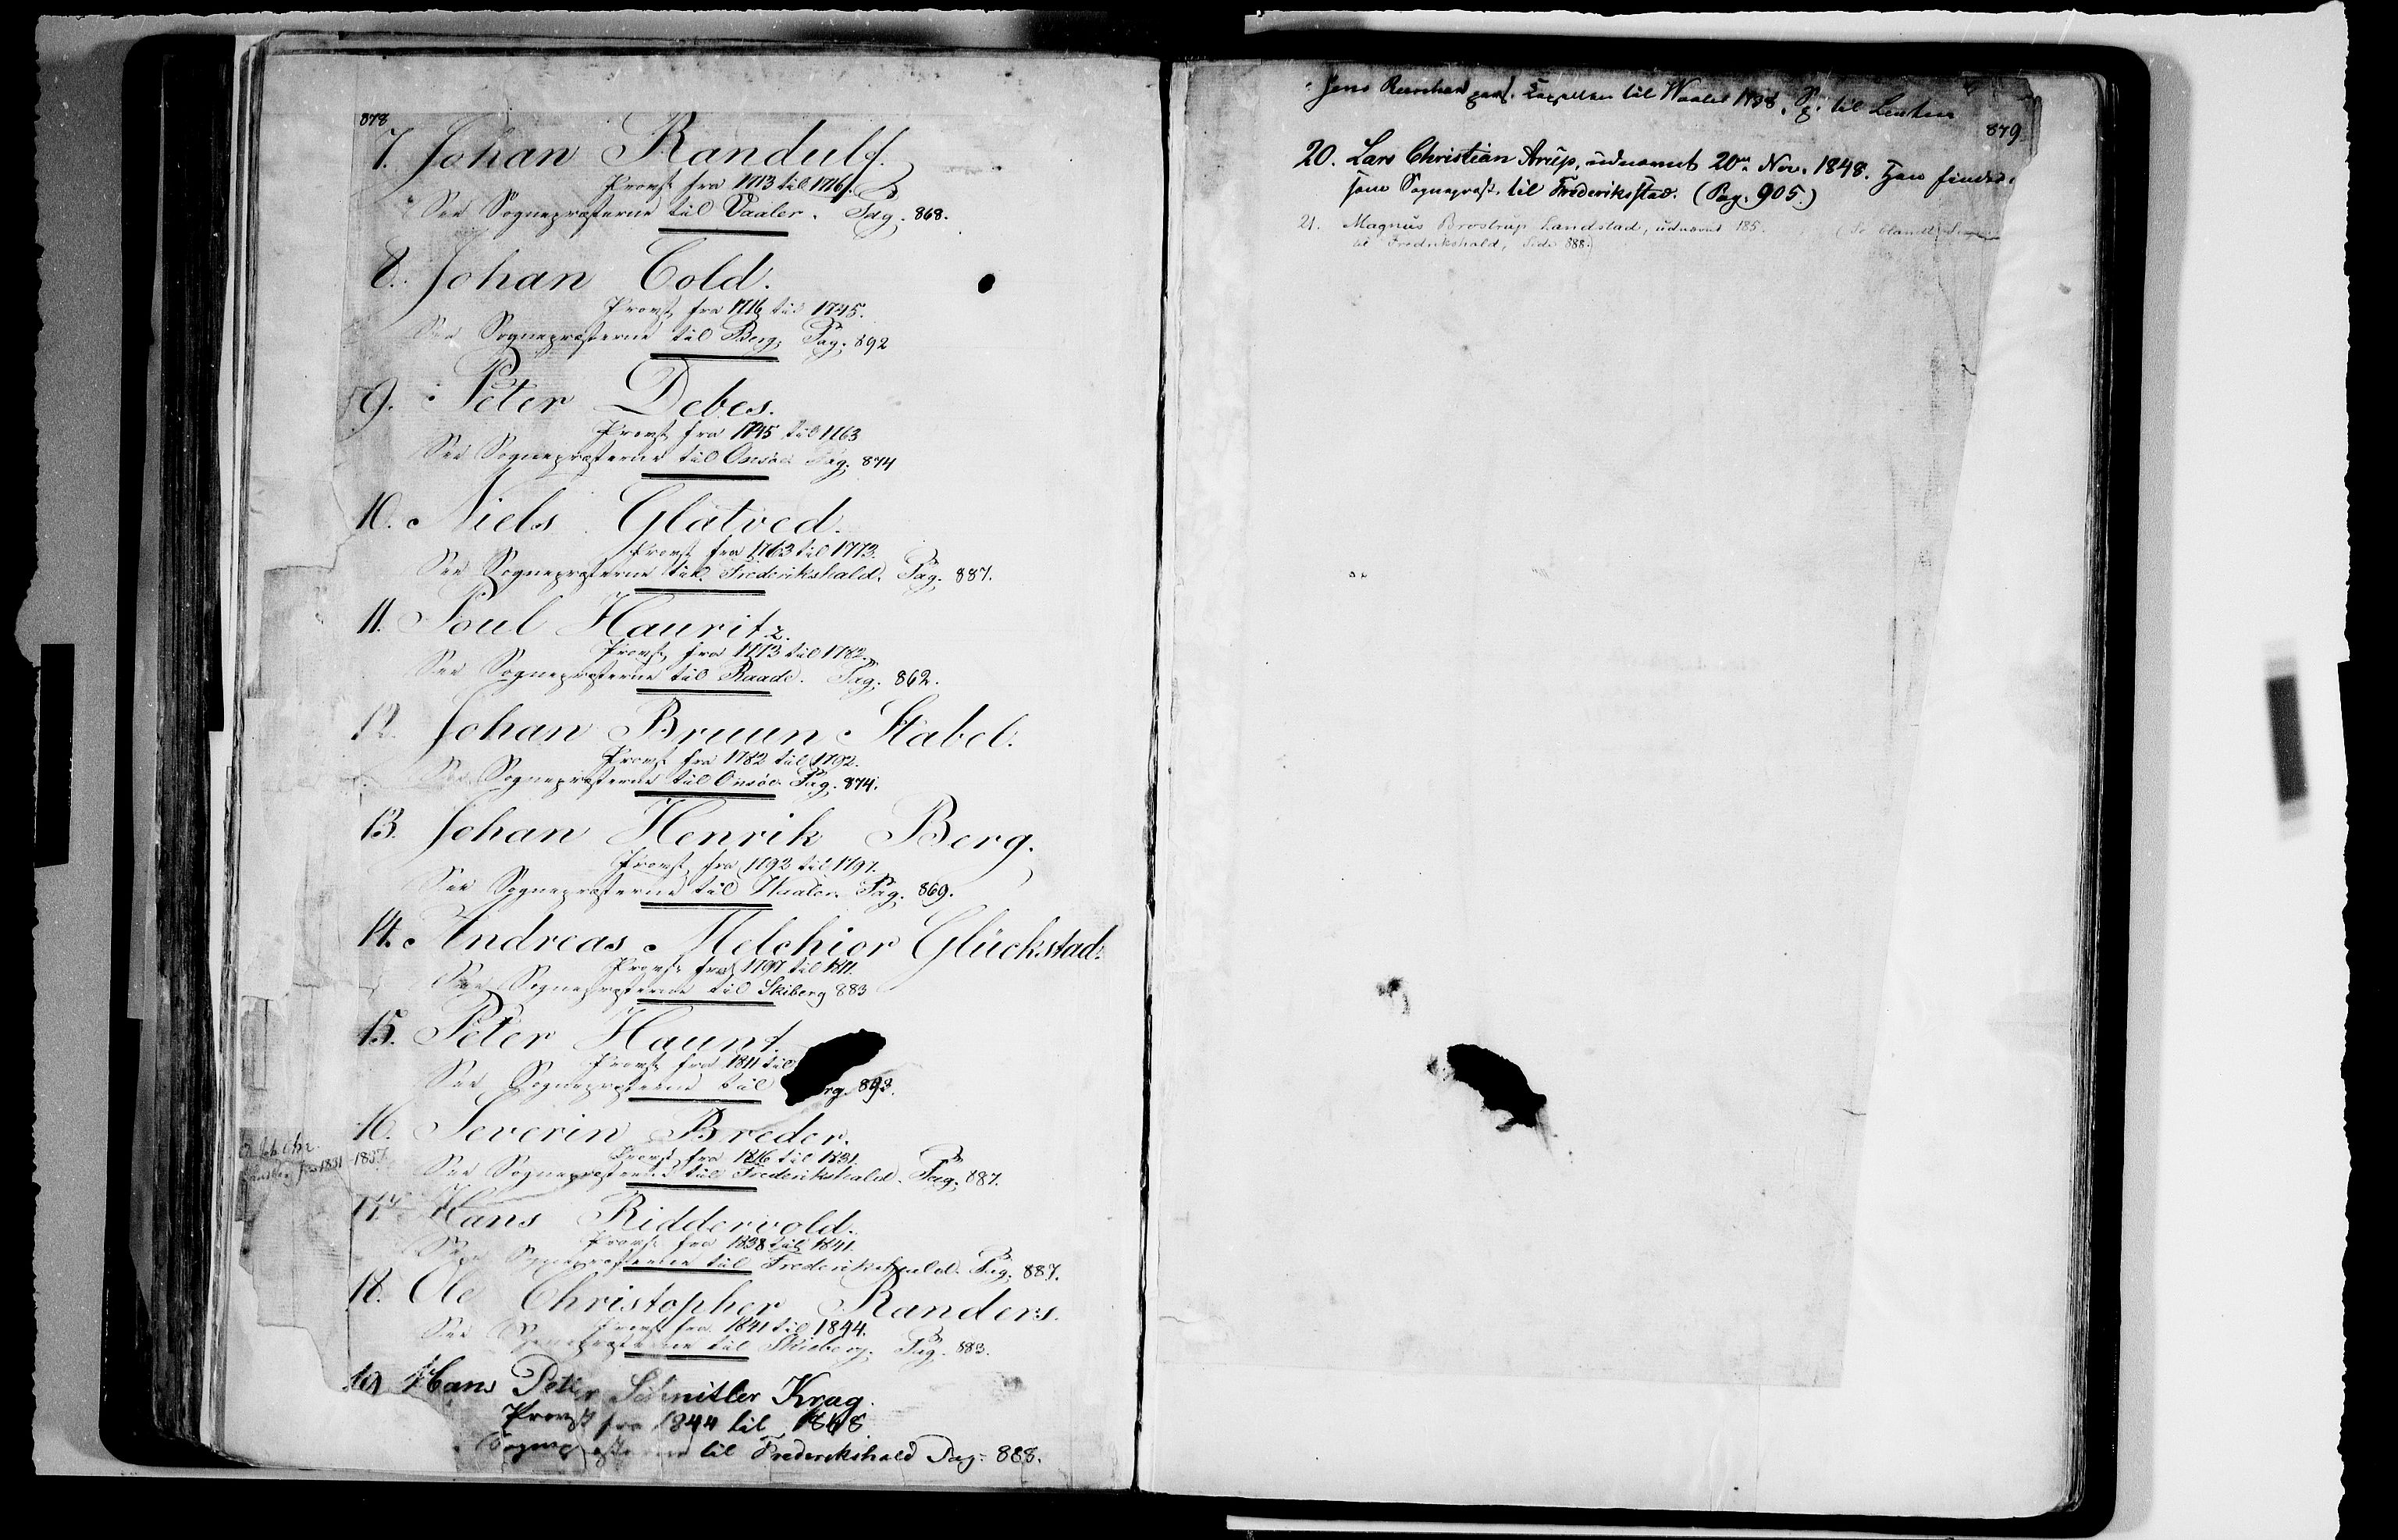 878
7. Johan Randulf.
Provst fra 1713 til 1716.
See Sognepræsterne til Vaaler. Pag. 868.
8. Johan Cold.
Provst fra 1716 til 1745.
See Sognepræsterne til Berg. Pag. 892
9. Peter Debes.
Provst fra 1745 til 1763
See Sognepræsterne til Onsöe Pag. 874
10. Niels Glatved.
Provst fra 1763 til 1773.
See Sognepræsterne til Frederikshald. Pag. 887.
11. Poul Hauritz.
Provst fra 1773 til 1782.
See Sognepræsterne til Raade. Pag. 862.
12. Johan Bruun Stabel.
Provst fra 1782 til 1792.
See Sognepræsterne til Onsöe Pag. 874.
13. Johan Henrik Berg.
Provst fra 1793 til 1797.
See Sognepræsterne til Hvaler. Pag. 869.
14. Andreas Melchior Glückstad.
Provst fra 1797 til 1811.
See Sognepræsterne til Skiberg 883
15. Peter Haunt.
Provst fra 1811 til
See Sognepræsterne til rg. 893.
16. Severin Breder.
Provst fra 1816 til 1831.
See Sognepræsterne til Frederikshald. Pag. 887.
fra 1831-1837.
17. Hans Riddervold.
Provst fra 1838 til 1841.
See Sognepræsterne til Frederikshald. Pag. 887.
18. Ole Christopher Randers.
Provst fra 1841 til 1844.
See Sognepræsterne til Skieberg. Pag. 883.
19 Hans Peter Schnitler Krag.
Provst fra 1844 til 1848
Sognepræsterne til Frederikshald Pag. 888.
Jens pers. Capellan til Waaler 1738. Sp. til
879
20. Lars Christian Arup, udnævnt 20de Nov. 1848. Han findes
som Sognepræst til Frederiksstad. (Pag. 905.)
21. Magnus Brostrup Landstad, udnævnt 185 (Se blandt
til Fredrikshald, Side 888.)